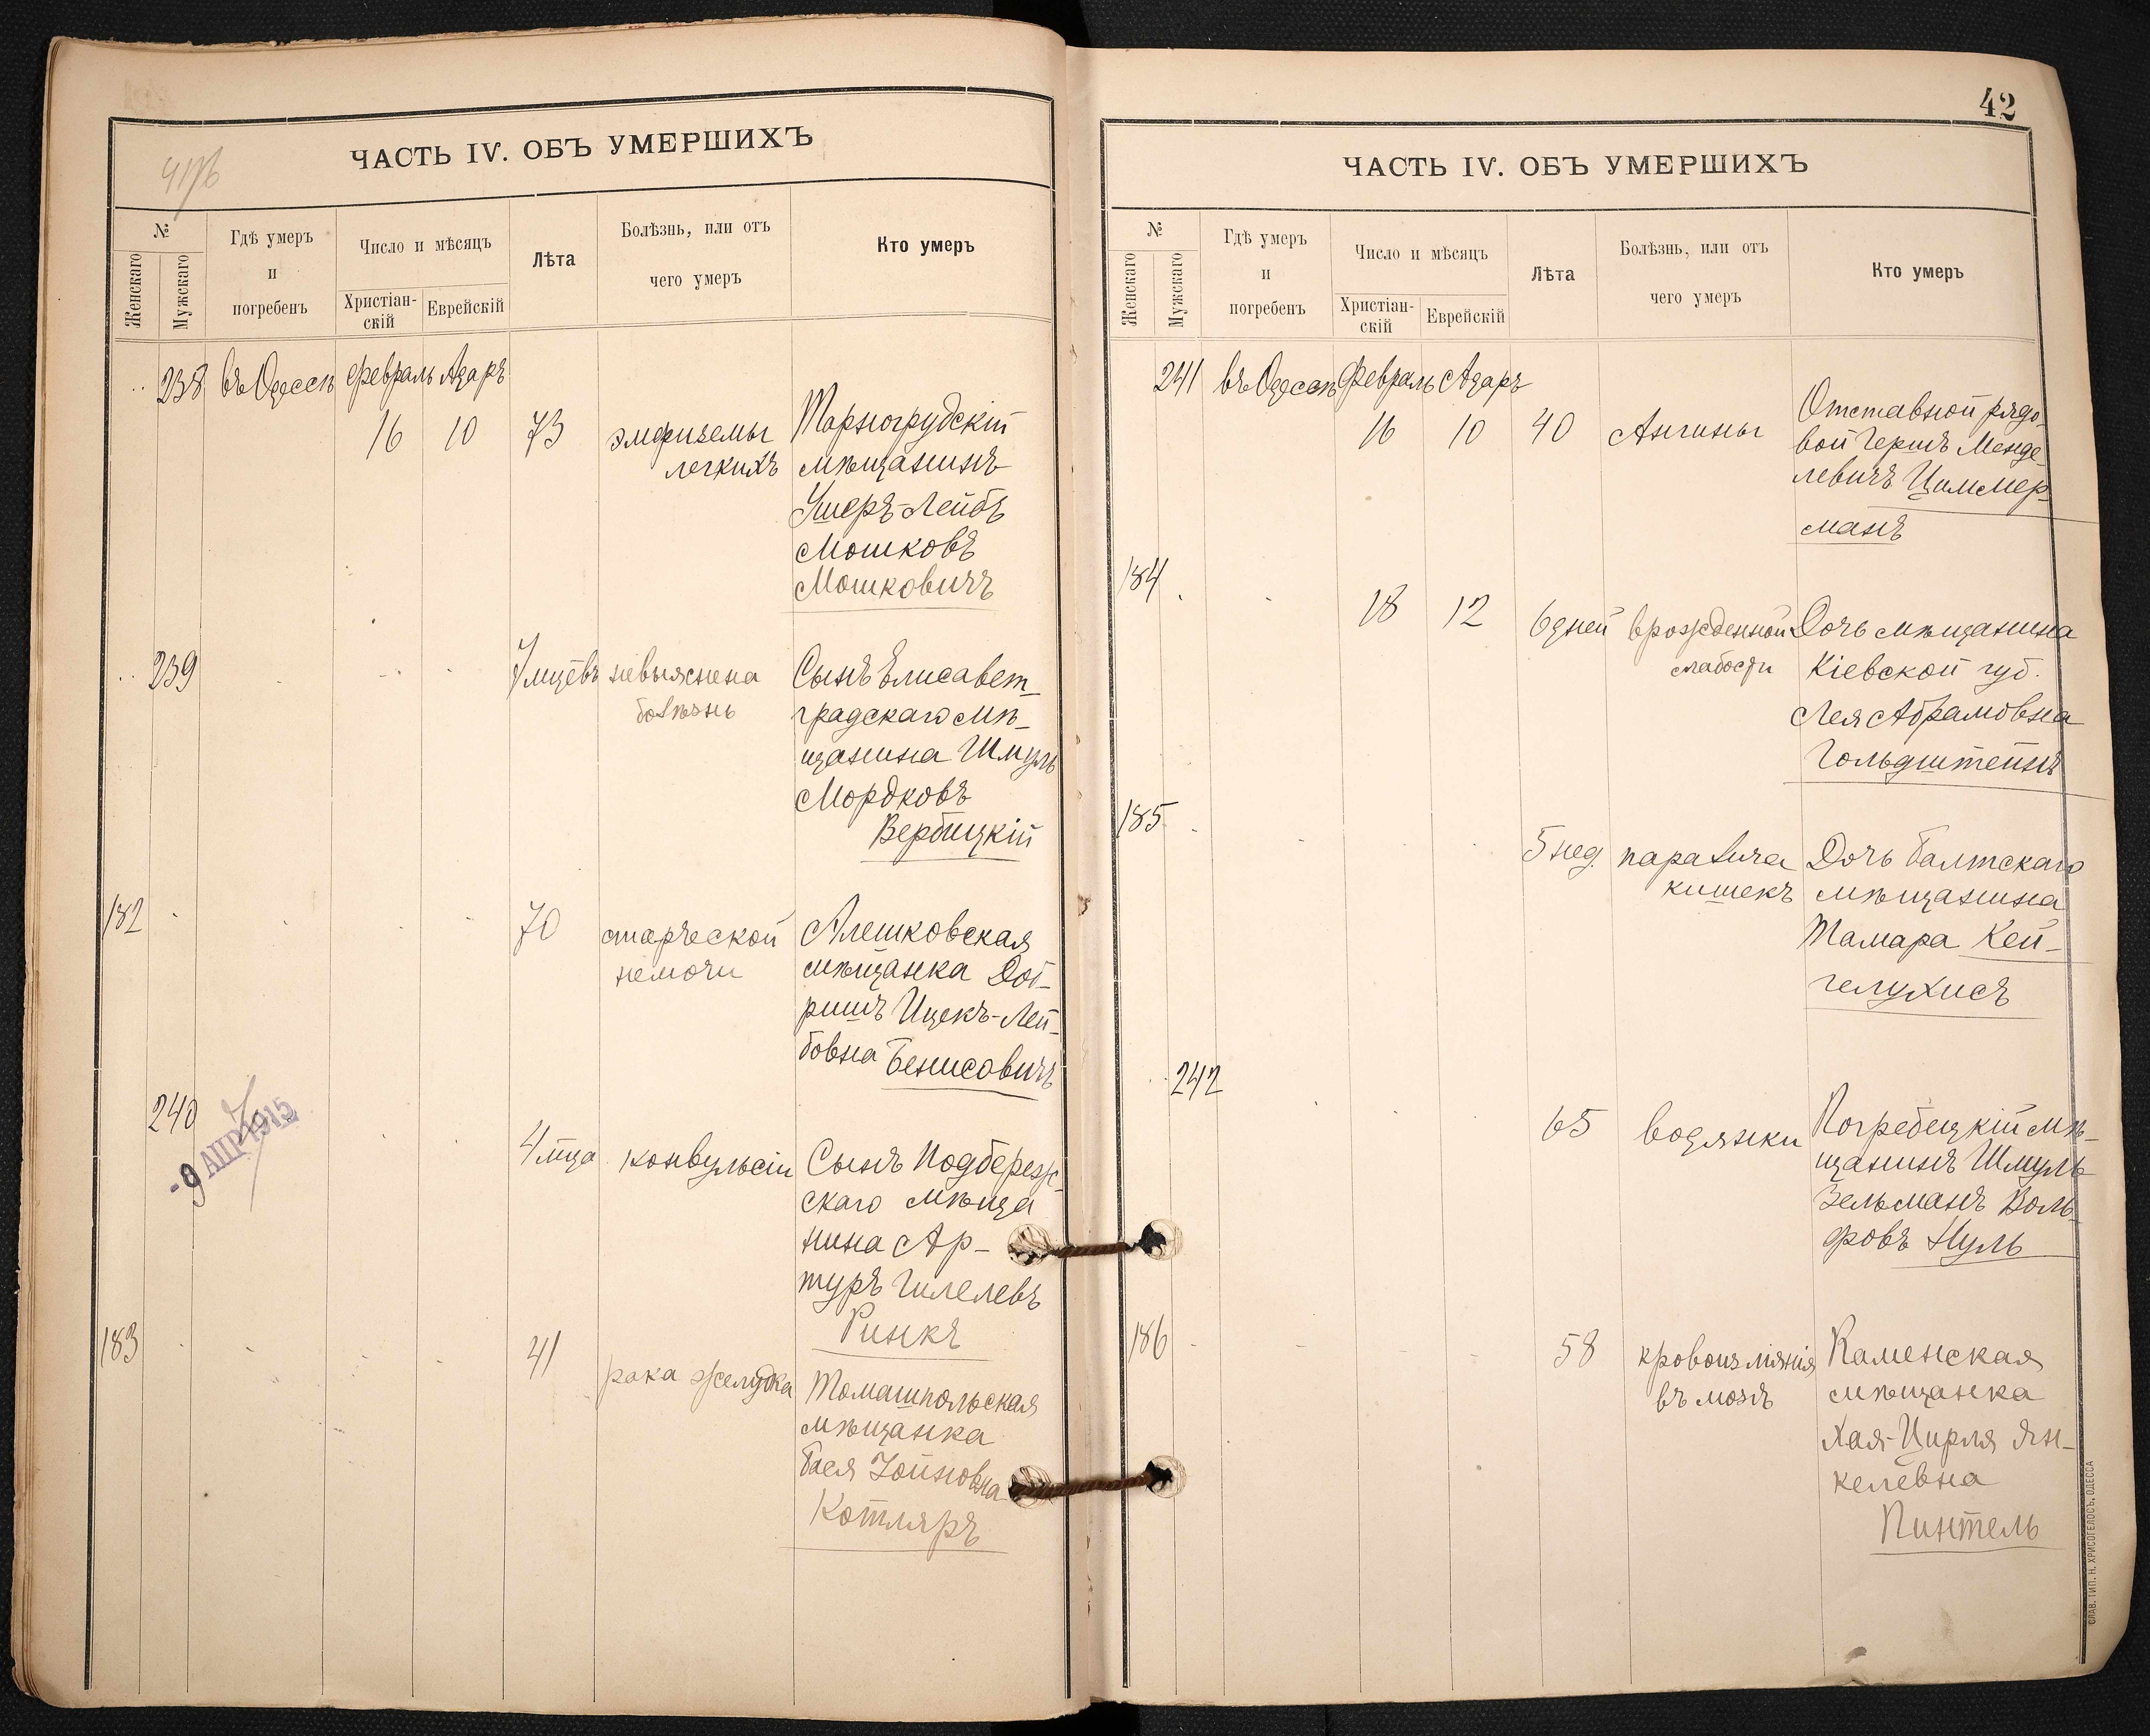 41об
ЧАСТЬ IV. ОБЪ УМЕРШИХЪ
№
Женскаго
Мужскаго
Гдѣ умеръ
и
погребенъ
Число и мѣсяцъ
Христіан-
скій
Еврейскій
Лѣта
Болѣзнь, или отъ
чего умеръ
Кто умеръ
238 въ Одессѣ Февраль Адаръ
16 10 73 эмфиземы
легкихъ
Тарногрудскій
мѣщанинъ
Ушеръ-Лейбъ
Мошковъ
Мошковичъ
239 7 мцевъ невыяснена
болѣзнь
Сынъ Елисавет-
градскаго мѣ-
щанина Шмуль
Мордковъ
Вербицкій
182 70 старческой
немочи
Алешковская
мѣщанка Доб-
ришъ Ицекъ-Лей-
бовна Бенисовичъ
240
- 9 АПР 1915
4 мца конвульсіи
Сынъ Подбереж-
скаго мѣща
нина Ар-
туръ Гилелевъ
Ринкъ
183 41 рака желудка
Томашпольская
мѣщанка
Бася Зойновна
Котляръ
42
ЧАСТЬ IV. ОБЪ УМЕРШИХЪ
№
Женскаго
Мужскаго
Гдѣ умеръ
и
погребенъ
Число и мѣсяцъ
Христіан-
скій
Еврейскій
Лѣта
Болѣзнь, или отъ
чего умеръ
Кто умеръ
241 въ Одессѣ Февраль Адаръ
16 10 40 Ангины
Отставной рядо-
вой Гершъ Менде-
левичъ Циммер-
манъ
184 18 12 6 дней врожденной
слабости
Дочь мѣщанина
Кіевской губ.
Лея Абрамовна
Гольдштейнъ
185 5 нед. паралича
кишекъ
Дочь Балтскаго
мѣщанина
Тамара Кей-
гелухисъ
242 65 водянки
Погребецкій мѣ-
щанинъ Шмуль
Зельманъ Воль-
фовъ Нуль
186 58 кровоизліянія
въ мозгъ
Каменская
мѣщанка
Хая-Цирля Ян-
келевна
Пинтель
СЛАВ. ТИП. Н. ХРИСОГЕЛОСЪ, ОДЕССА